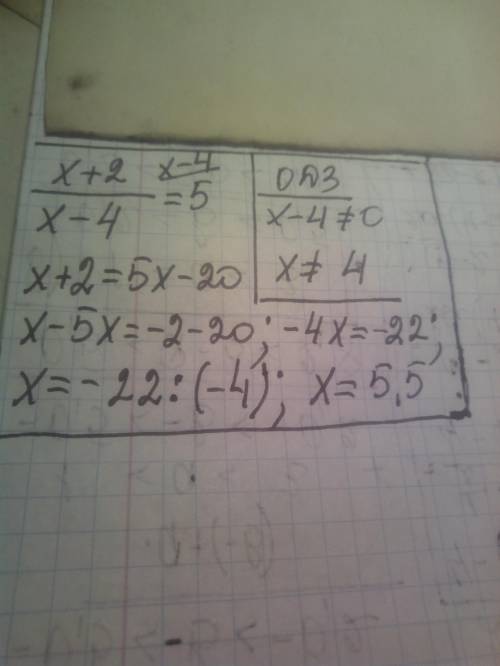 x+2 x-4
x-4 =5
ОДЗ
x-4≠0
x≠ 4
x+2=5x-20
x-5x=-2-20; -4x=-22;
x=-22:(-4); x=5,5